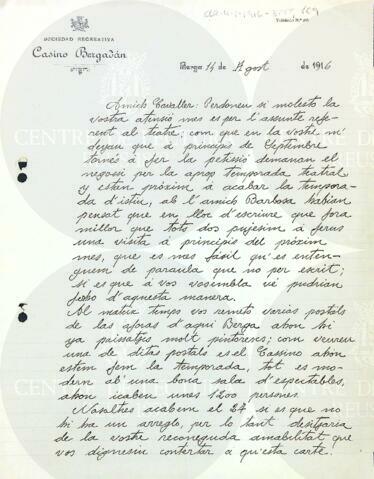 SOCIEDAD RECREATIVA
Casino Bergadán
Berga 14 de Agost de 1916
Amich Cavaller: Perdoneu si molesto la
vostra atensió mes es per l'assunte refe-
rent al teatre; com que en la vostre m'
deyau que a principis de Septembre
tornés á fer la petisió demanan el
negossi per la aprop temporada teatral
y estem próxim á acabar la tempora-
da d'istiu, ab l'amich Barbosa habiam
pensat que en lloc d'escriure que fora
millor que tots dos pujesim á ferus
una visita á principis del próxim
mes, que es mes fásil qu'es enten-
guem de paraula que no per escrit;
si es que á vos vos embla vé pudrian
ferho d'aquesta manera.
Al mateix temps vos remeto varias postals
de las aforas d'aquí Berga ahon hi
ya paisatjes molt pintorescs; com veureu
una de ditas postals es el Cassino ahon
estem fem la temporada, tot es mo-
dern al'una bona sala d'espectables,
ahon icaben unes 1200 persones.
Nosalhes acabem el 24 si es que no
hi ha un arreglo, per lo tant desitjaria
de la vostre reconeguda amabilitat que
vos dignesiu contestar a qu'esta carte.